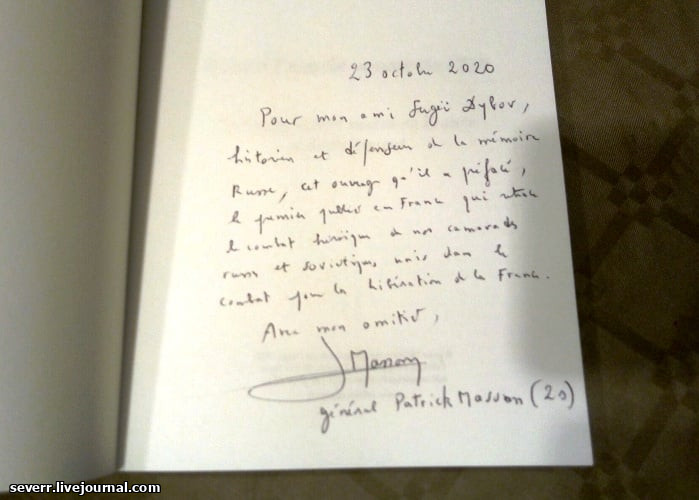 23 octobre 2020
Pour mon ami Sergueï Dybov,
historien et défenseur de la mémoire
Russe, cet ouvrage qu'il a préfacé,
le premier publié en France qui retrace
le combat héroïque de nos camarades
russes et soviétiques, unis dans le
combat pour la libération de la France.
Avec mon amitié,
Masson
général Patrick Masson (2s)
severr.livejournal.com